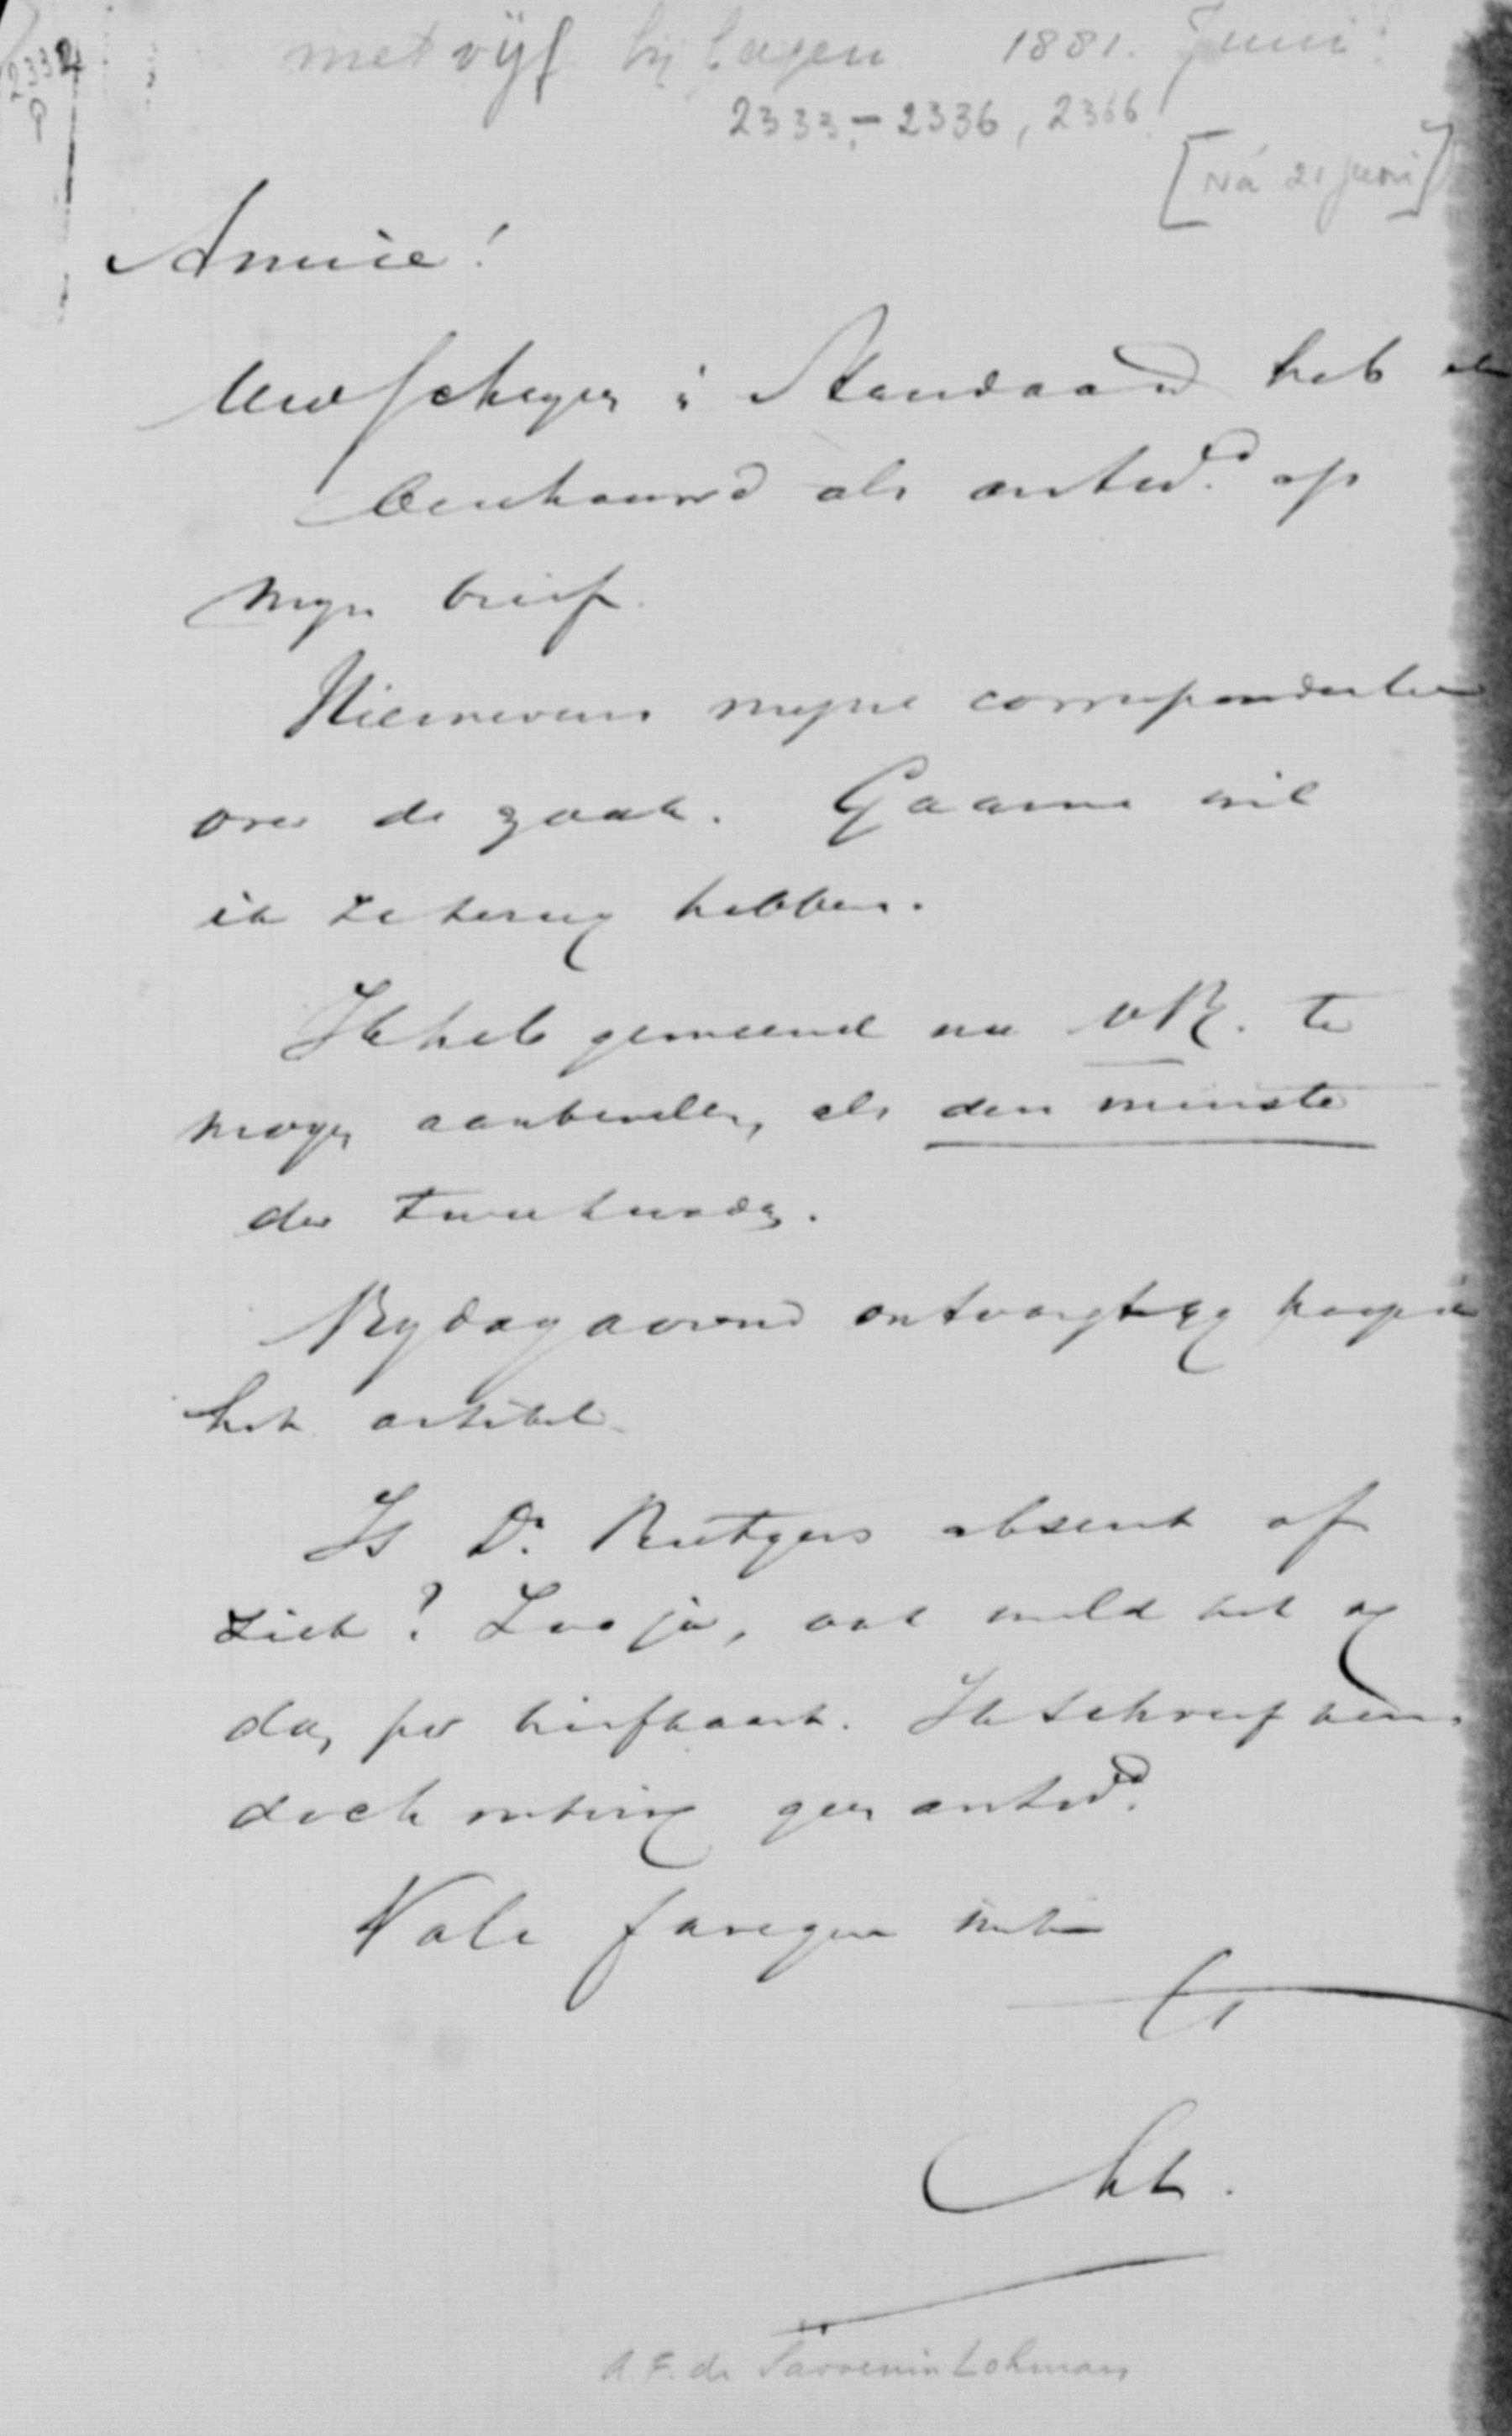 2332
met vijf bijlagen 1881. Juni
2333-2336, 2366
[Ná 21 juni]
Amice!
Uw schrijven i Standaard heb
beschouwd als antwd. op
mijn brief.
Hiernevens mijne correspondentie
over de zaak. Gaarne wil
ik ze terug hebben.
Ik heb gemeend nu vR. te
mogen aanbevelen, als den minste
der twee kwaden.
Vrydagavond ontvangt gij hoop ik
het artikel.
Is Dr. Rutgers absent of
ziek? Zoo ja, meld het
dan per briefkaart. Ik schreef hem,
doch ontving geen antwd.
Vale faveque
t t
AFL.
A.F. de Savornin Lohman